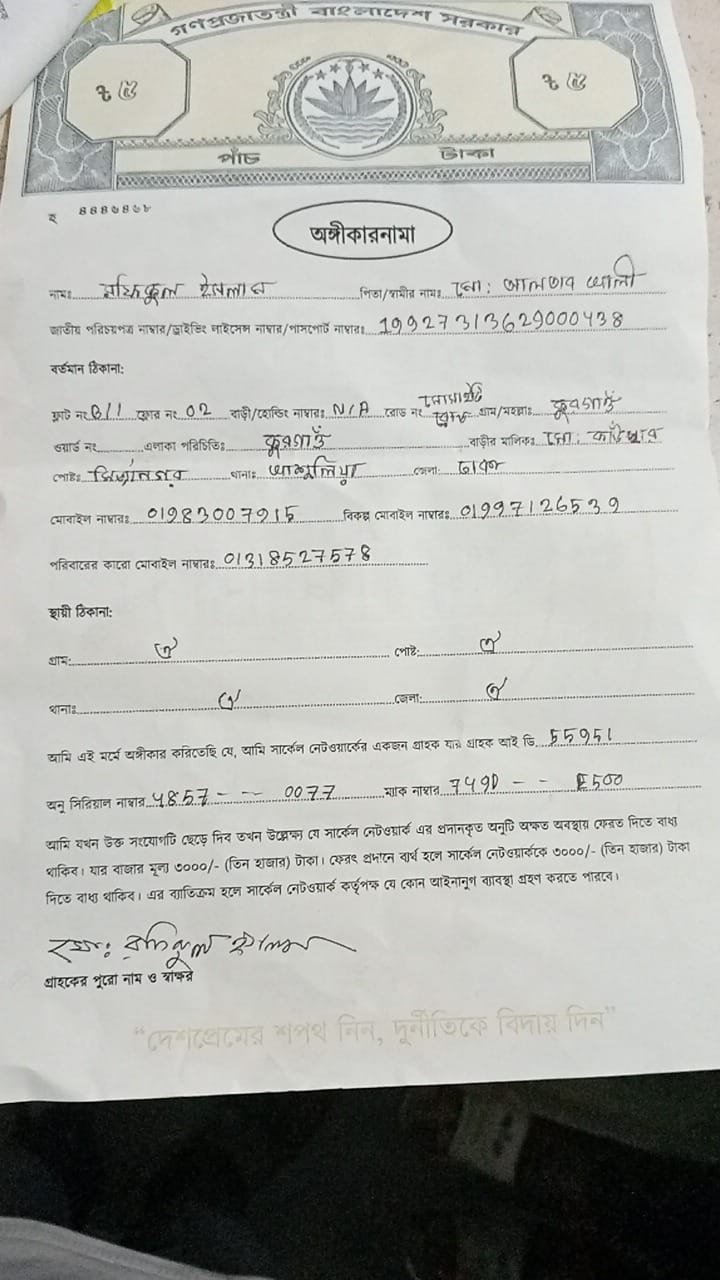 গণপ্রজাতন্ত্রী বাংলাদেশ সরকার
৳ ৫ ৳ ৫
পাঁচ টাকা
৪৪৪৬৪৬৮
অঙ্গীকারনামা
নামঃ রফিকুল ইসলাম পিতা/স্বামীর নামঃ মো: আলতাব আলী
জাতীয় পরিচয়পত্র নাম্বার/ড্রাইভিং লাইসেন্স নাম্বার/পাসপোর্ট নাম্বারঃ 19927313629000438
বর্তমান ঠিকানা:
ফ্লাট নংঃ B/1 ফ্লোর নংঃ 02 বাড়ী/হোল্ডিং নাম্বারঃ N/A রোড নং গ্রাম/মহল্লাঃ কুরগাঁও
ওয়ার্ড নং এলাকা পরিচিতিঃ কুরগাঁও বাড়ীর মালিকঃ মো:
পোষ্টঃ থানাঃ আশুলিয়া জেলা: ঢাকা
মোবাইল নাম্বারঃ 01983007915 বিকল্প মোবাইল নাম্বারঃ 01997126539
পরিবারের কারো মোবাইল নাম্বারঃ 01318527578
স্থায়ী ঠিকানা:
গ্রাম: ঐ পোষ্ট: ঐ
থানাঃ ঐ জেলা: ঐ
আমি এই মর্মে অঙ্গীকার করিতেছি যে, আমি সার্কেল নেটওয়ার্কের একজন গ্রাহক যার গ্রাহক আই ডি 55951
অনু সিরিয়াল নাম্বার 4857 - - 0077 ম্যাক নাম্বার 749D - - E500
আমি যখন উক্ত সংযোগটি ছেড়ে দিব তখন উল্লেক্ষ্য যে সার্কেল নেটওয়ার্ক এর প্রদানকৃত অনুটি অক্ষত অবস্থায় ফেরত দিতে বাধ্য
থাকিব। যার বাজার মূল্য ৩০০০/- (তিন হাজার) টাকা। ফেরৎ প্রদানে ব্যর্থ হলে সার্কেল নেটওয়ার্ককে ৩০০০/- (তিন হাজার) টাকা
দিতে বাধ্য থাকিব। এর ব্যতিক্রম হলে সার্কেল নেটওয়ার্ক কর্তৃপক্ষ যে কোন আইনানুগ ব্যবস্থা গ্রহণ করতে পারবে।
রফিকুল ইসলাম
গ্রাহকের পুরো নাম ও স্বাক্ষর
“দেশপ্রেমের শপথ নিন, দুর্নীতিকে বিদায় দিন”